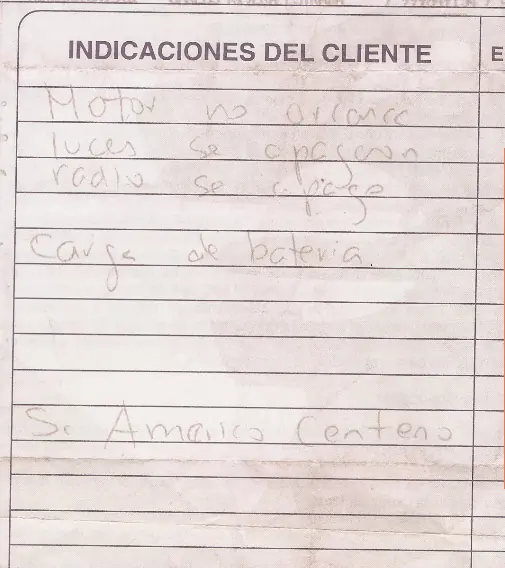 INDICACIONES DEL CLIENTE
E
Motor no arranca
luces se apagaron
radio se apago
Carga de bateria.
Sr Americo Centeno